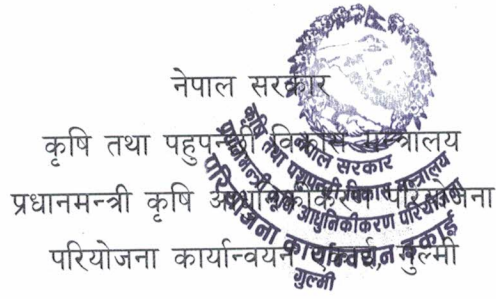 नेपाल सरकार
कृषि तथा पहुपन्छी विकास मन्त्रालय
प्रधानमन्त्री कृषि आधुनिकीकरण परियोजना
परियोजना कार्यान्वयन इकाई, गुल्मी
नेपाल सरकार
कृषि तथा पशुपन्छी विकास मन्त्रालय
प्रधानमन्त्री कृषि आधुनिकीकरण परियोजना
परियोजना कार्यान्वयन इकाई
गुल्मी